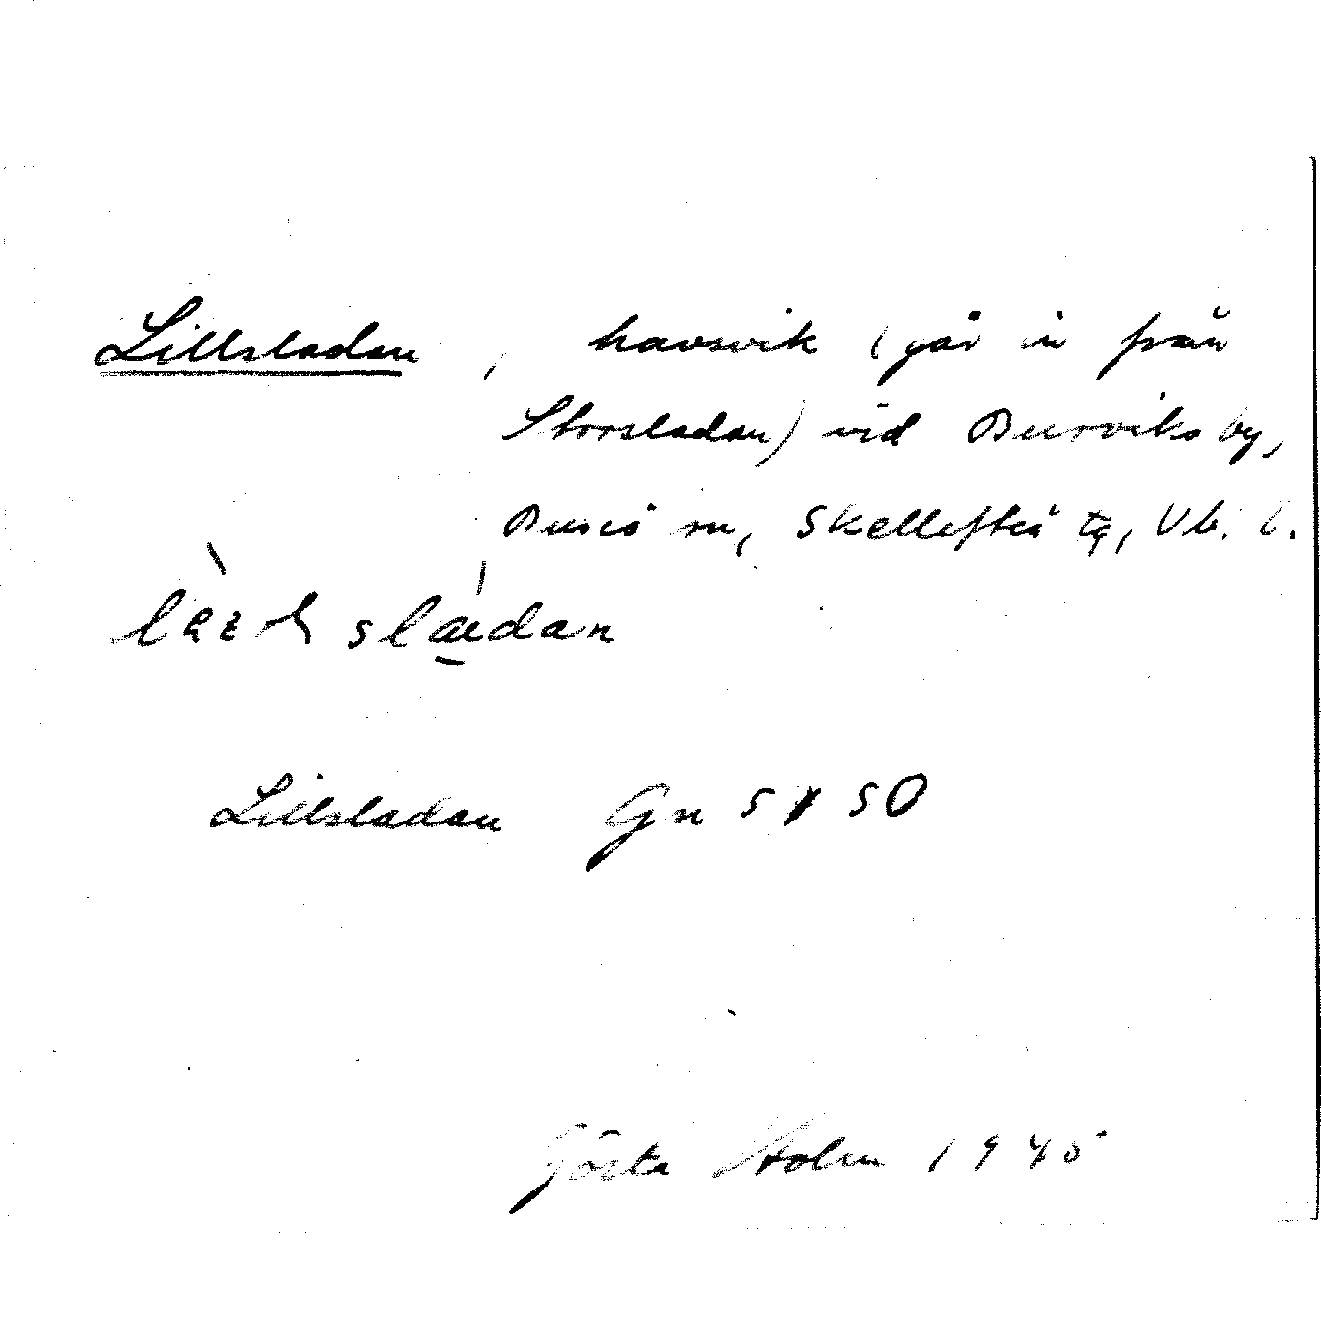 Lillsladan, havsvik (går in från
Storsladan) vid Burviks by,
Bureå sn, Skellefteå tg, Vb. l.
slædan
Lillsladan Gn 50
Gösta Holm 1945